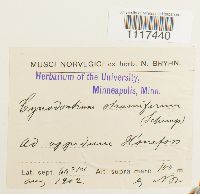 1117440
MUSCI NORVEGICI ex herb. N. BRYHN.
Herbarium of the University.
Minneapolis, Minn.
Cynodontium strumiferum
Ad oppidum Hönefos
Lat. sept. Alt. supra mare
1902